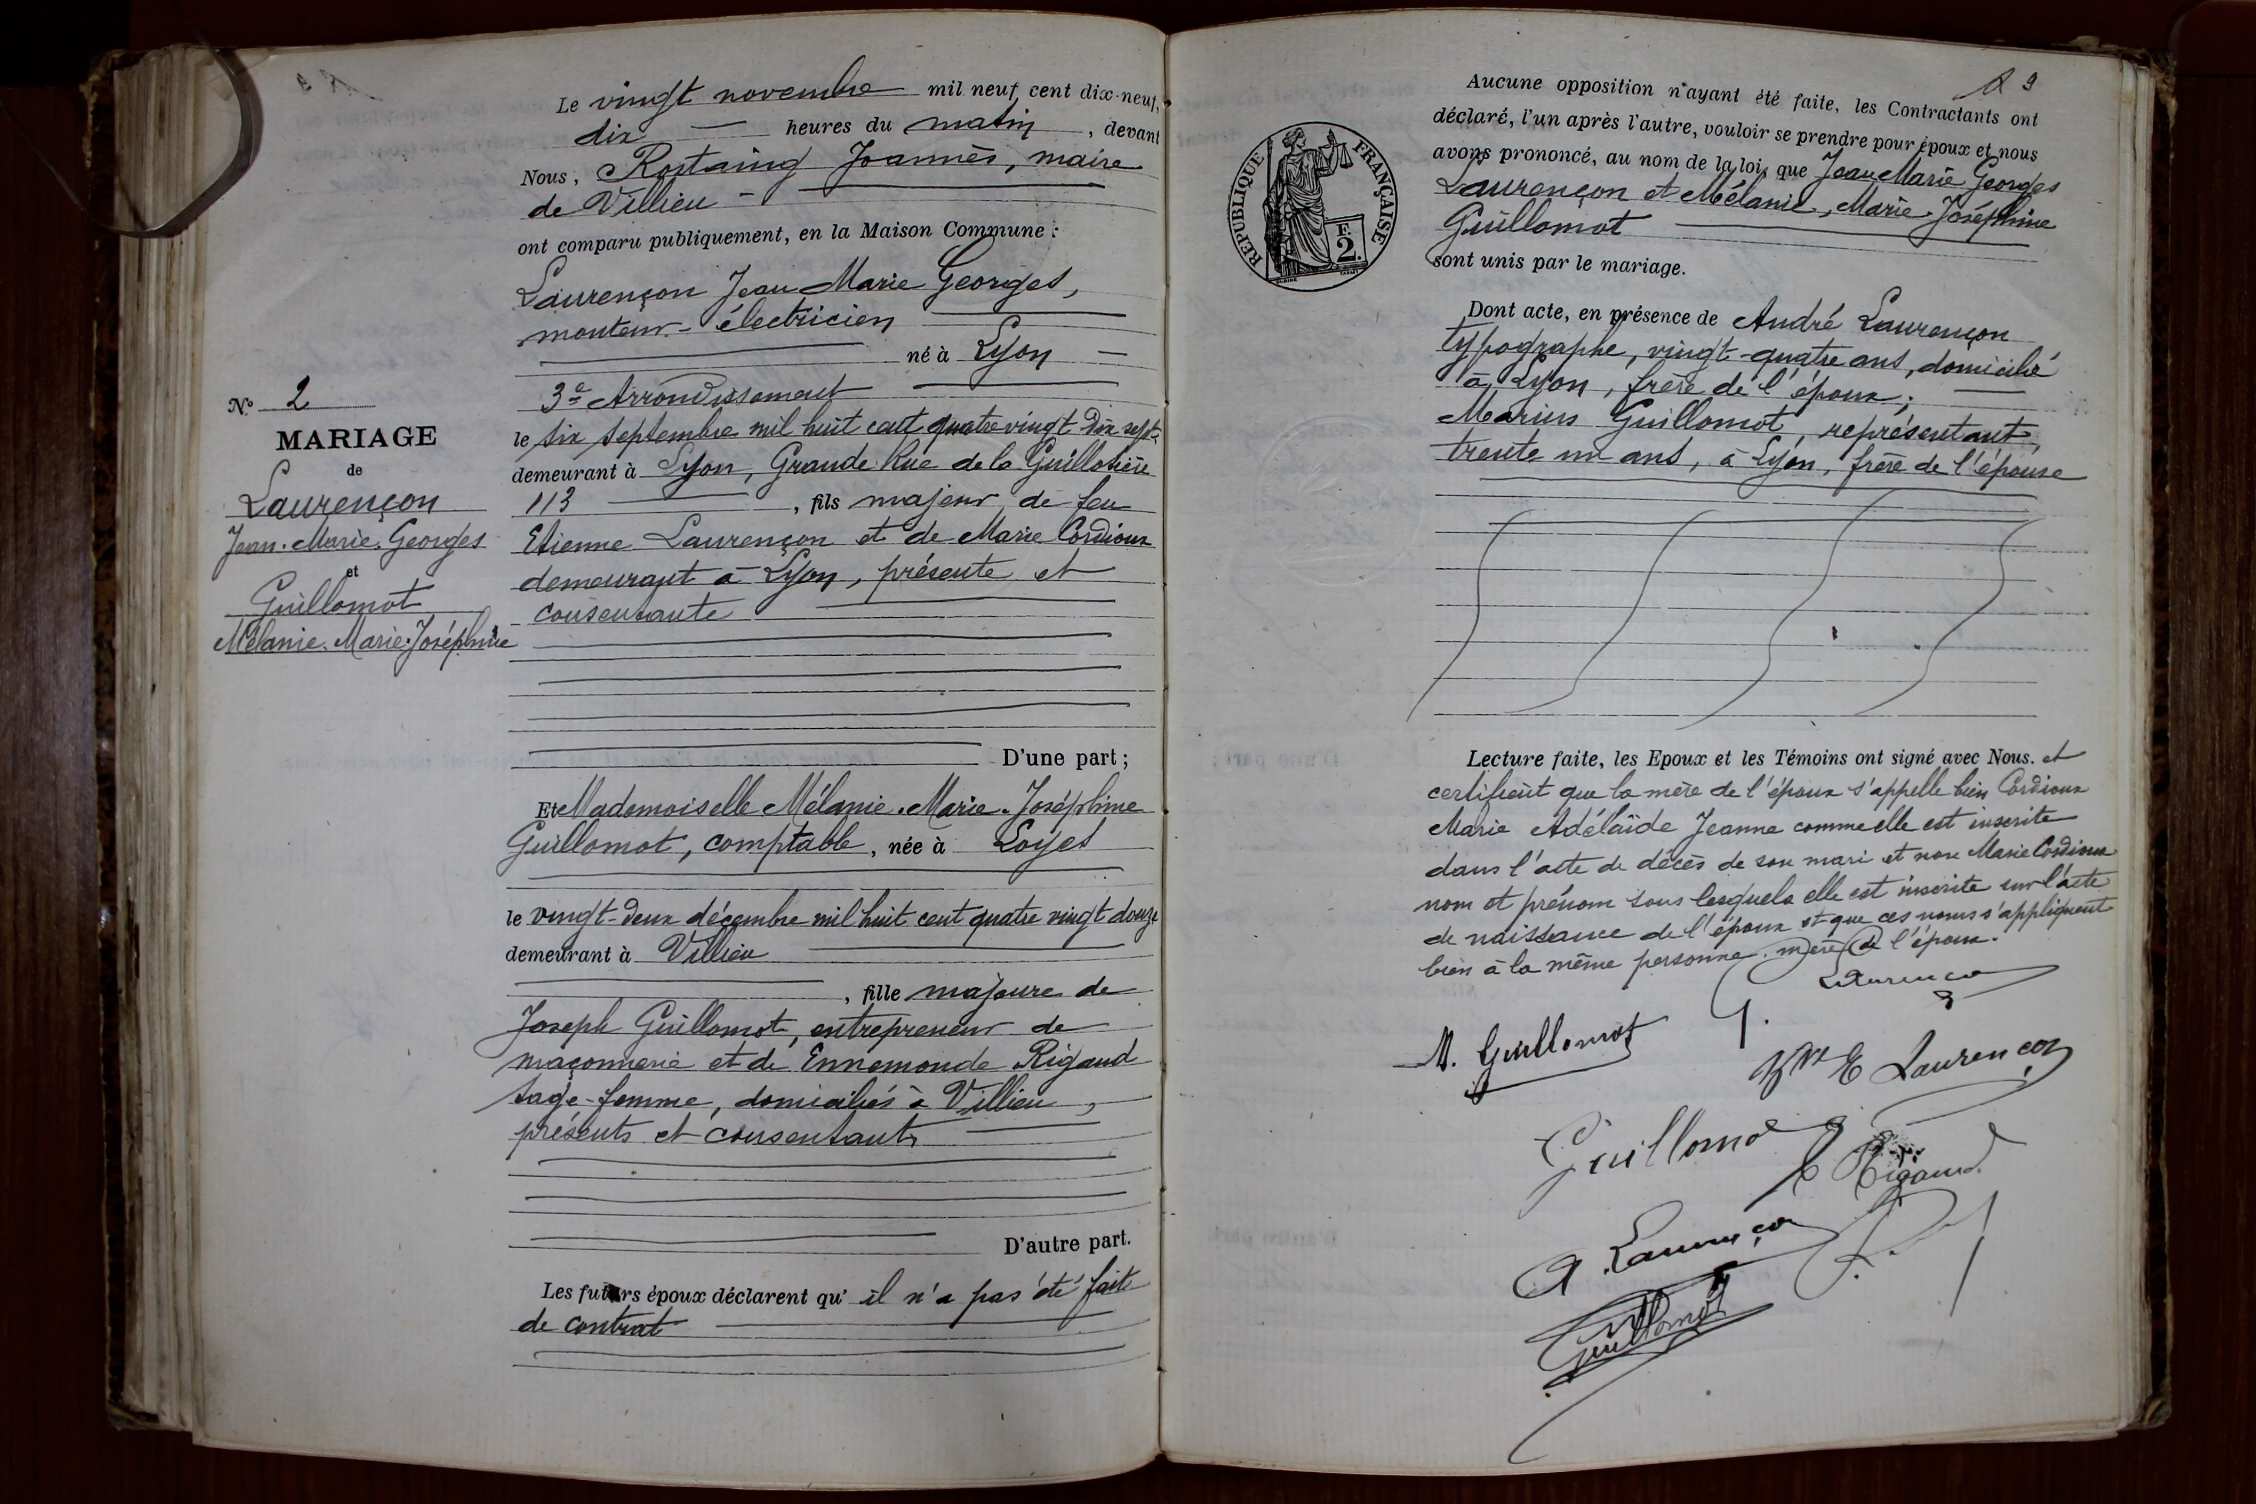 N° 2
MARIAGE
de
Laurençon
Jean-Marie-Georges
et
Guillomot
Mélanie-Marie-Joséphine
Le vingt novembre mil neuf cent dix-neuf,
dix heures du matin, devant
Nous, Rostaing Joannès, maire
de Villieu
ont comparu publiquement, en la Maison Commune :
Laurençon Jean Marie Georges,
monteur-électricien
né à Lyon
3e Arrondissement
le six septembre mil huit cent quatre vingt dix sept
demeurant à Lyon, Grande Rue de la Guillotière
113, fils majeur de feu
Etienne Laurençon et de Marie Cordioux
demeurant à Lyon, présente et
consentante
D'une part ;
Et Mademoiselle Mélanie-Marie-Joséphine
Guillomot, comptable, née à Loyes
le vingt-deux décembre mil huit cent quatre vingt douze
demeurant à Villieu
, fille majeure de
Joseph Guillomot, entrepreneur de
maçonnerie et de Ennemonde Rigaud
sage-femme, domiciliés à Villieu,
présents et consentants
D'autre part.
Les futurs époux déclarent qu'il n'a pas été fait
de contrat
9
Aucune opposition n'ayant été faite, les Contractants ont
déclaré, l'un après l'autre, vouloir se prendre pour époux et nous
avons prononcé, au nom de la loi, que Jean Marie Georges
Laurençon et Mélanie, Marie Joséphine
Guillomot
sont unis par le mariage.
RÉPUBLIQUE FRANÇAISE
F.
2.
Dont acte, en présence de André Laurençon
typographe, vingt-quatre ans, domicilié
à Lyon, frère de l'époux ;
Marius Guillomot, représentant,
trente un ans, à Lyon, frère de l'épouse
Lecture faite, les Epoux et les Témoins ont signé avec Nous. et
certifient que la mère de l'époux s'appelle bien Cordioux
Marie Adélaïde Jeanne comme elle est inscrite
dans l'acte de décès de son mari et non Marie Cordioux
nom et prénom sous lesquels elle est inscrite sur l'acte
de naissance de l'époux et que ces noms s'appliquent
bien à la même personne. mère de l'époux.
G. Laurençon
M. Guillomot
Vve E Laurençon
Guillomot
E Rigaud
A. Laurençon
Guillomot